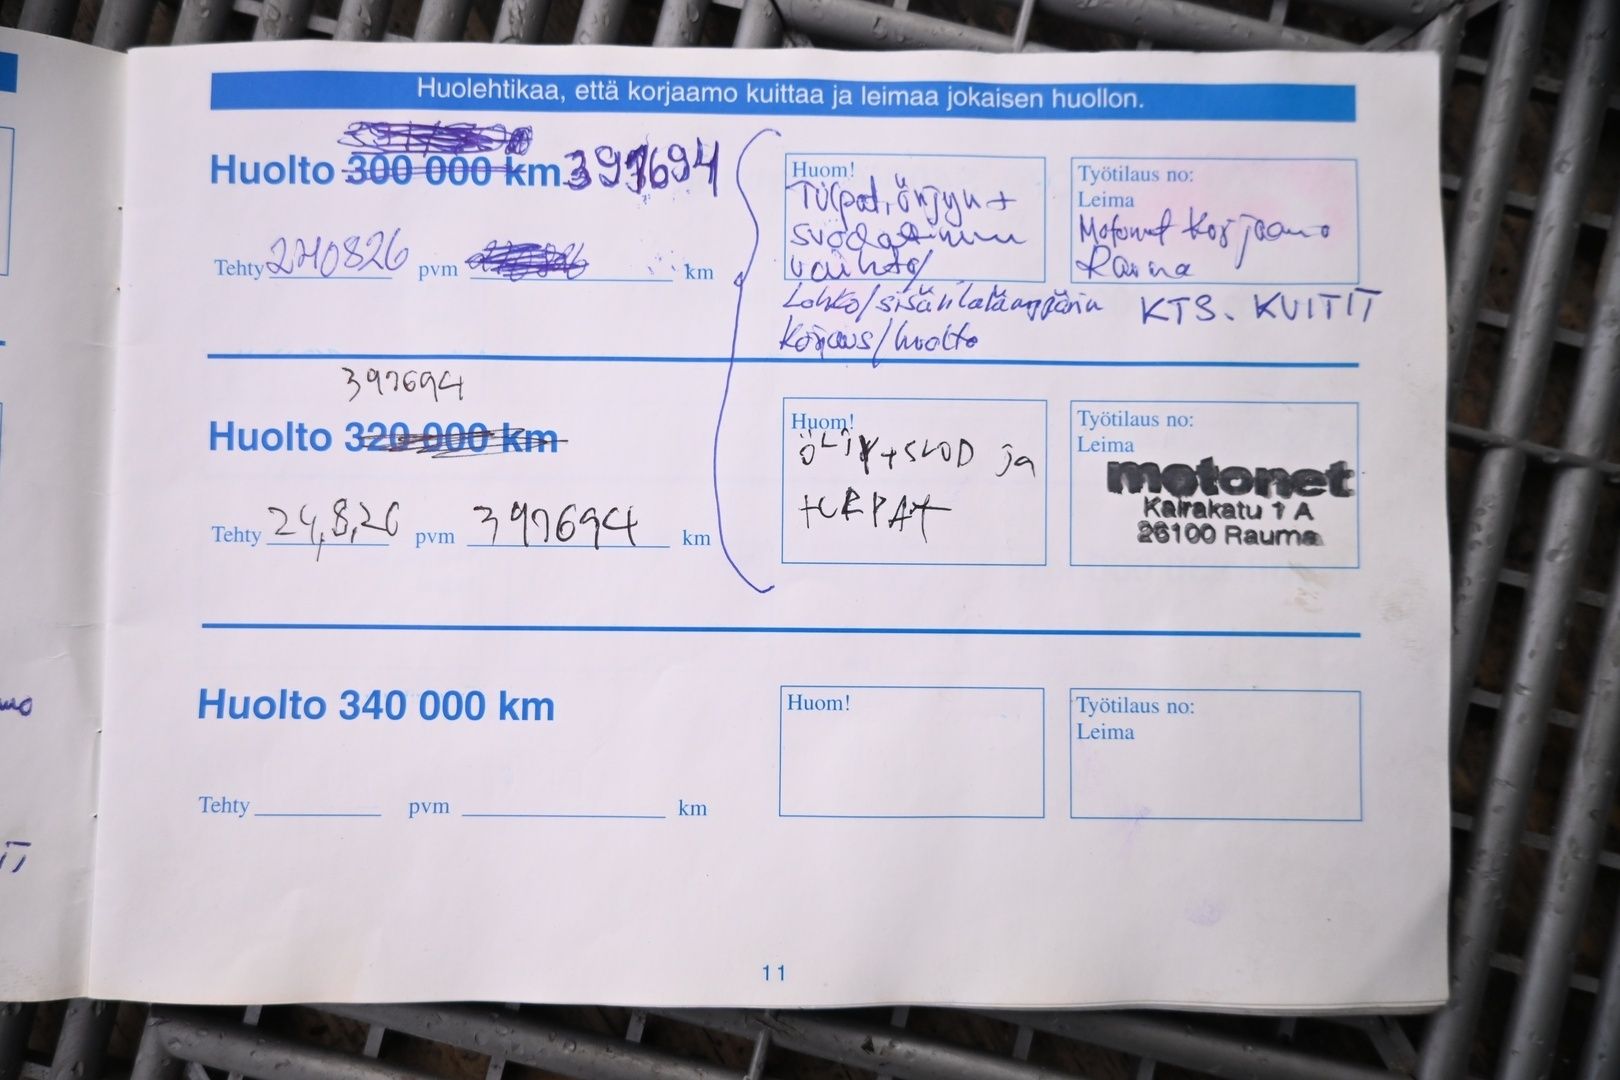 Huolehtikaa, että korjaamo kuittaa ja leimaa jokaisen huollon.
Huolto 300 000 km 397694
Tehty 240826 pvm km
Huom!
Tulpat, öljyn +
suodattimen
vaihto/
Lohko/sisätila
korjaus/huolto
Työtilaus no:
Leima
Motonet Korjaamo
Rauma
KTS. KUITIT
397694
Huolto 320 000 km
Tehty 24,8,26 pvm 397694 km
Huom!
ÖLJY+SUOD ja
tULPAt
Työtilaus no:
Leima
motonet
Kairakatu 1 A
26100 Rauma
Huolto 340 000 km
Tehty pvm km
Huom!
Työtilaus no:
Leima
11